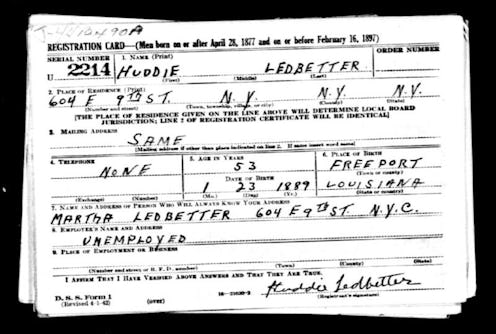 REGISTRATION CARD—(Men born on or after April 28, 1877 and on or before February 16, 1897)
SERIAL NUMBER 1. NAME (Print) ORDER NUMBER
U 2214 HUDDIE LEDBETTER
(First) (Middle) (Last)
2. PLACE OF RESIDENCE (Print)
604 E 9TH ST. N.Y. N.Y. N.Y.
(Number and street) (Town, township, village, or city) (County) (State)
[THE PLACE OF RESIDENCE GIVEN ON THE LINE ABOVE WILL DETERMINE LOCAL BOARD
JURISDICTION; LINE 2 OF REGISTRATION CERTIFICATE WILL BE IDENTICAL]
3. MAILING ADDRESS
SAME
(Mailing address if other than place indicated on line 2. If same insert word same)
4. TELEPHONE 5. AGE IN YEARS 6. PLACE OF BIRTH
NONE 53 FREEPORT
DATE OF BIRTH (Town or county)
1 23 1889 LOUISIANA
(Exchange) (Number) (Mo.) (Day) (Yr.) (State or country)
7. NAME AND ADDRESS OF PERSON WHO WILL ALWAYS KNOW YOUR ADDRESS
MARTHA LEDBETTER 604 E 9TH ST. N.Y.C.
8. EMPLOYER'S NAME AND ADDRESS
UNEMPLOYED
9. PLACE OF EMPLOYMENT OR BUSINESS
(Number and street or R. F. D. number) (Town) (County) (State)
I AFFIRM THAT I HAVE VERIFIED ABOVE ANSWERS AND THAT THEY ARE TRUE.
Huddie Ledbetter
D. S. S. Form 1
(Revised 4-1-42) (over) (Registrant's signature)